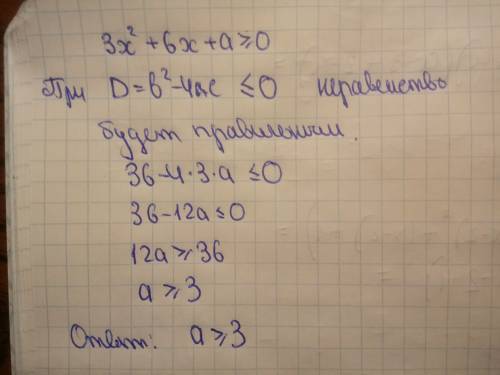 3x² + 6x + a ≥ 0
При D = b² - 4ac ≤ 0 неравенство
будет правильным.
36 - 4 · 3 · a ≤ 0
36 - 12a ≤ 0
12a ≥ 36
a ≥ 3
Ответ: a ≥ 3